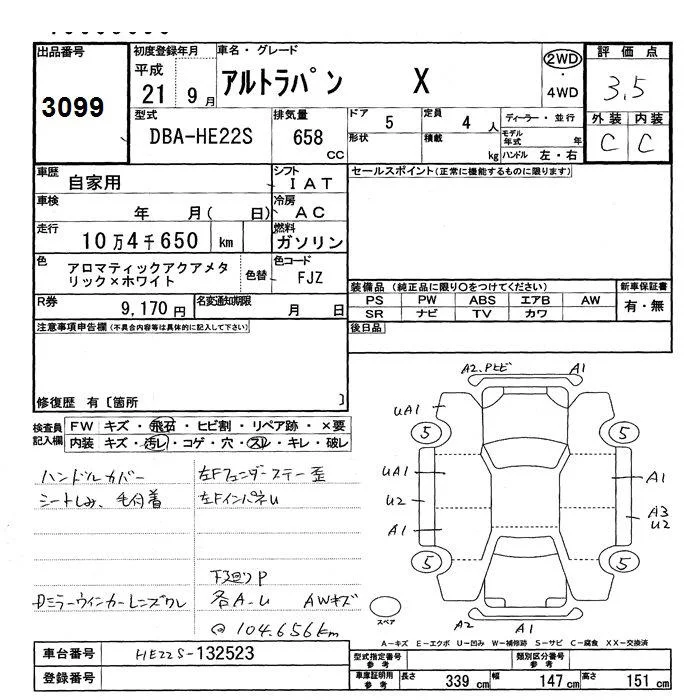 出品番号
3099
初度登録年月
平成
21 9月
車名・グレード
アルトラパン X
2WD
・
4WD
評価点
3.5
外装 内装
C C
型式
DBA-HE22S
排気量
658
cc
ドア 5
形状
定員 4 人
積載 kg
ディーラー・並行
モデル年式 年
ハンドル 左・右
車歴
自家用
シフト
IAT
車検
年 月( 日)
冷房
AC
走行
10万4千650 km
燃料
ガソリン
色
アロマティックアクアメタ
リック×ホワイト
色替
色コード
FJZ
R券
9,170円
名変通知期限
月 日
セールスポイント(正常に機能するものに限ります)
装備品(純正品に限り○をつけてください)
PS PW ABS エアB AW
SR ナビ TV カワ
新車保証書
有・無
後日品
注意事項申告欄(不具合内容等は具体的に記入して下さい)
修復歴 有〔箇所 〕
検査員
記入欄
FW キズ・飛石・ヒビ割・リペア跡・×要
内装 キズ・汚レ・コゲ・穴・スレ・キレ・破レ
ハンドルカバー
シートしみ、毛付着
Dミラーウインカーレンズワレ
左Fフェンダーステー歪
左FインパネU
下廻りP
各A-U AWキズ
@ 104.656km
A2.Pとビ A1
UA1
5 5
UA1 A1
U2 A3
U2
A1
5 5
A2 A1
スペア
A-キズ E-エクボ U-凹み W-補修跡 S-サビ C-腐食 XX-交換済
車台番号
HE22S-132523
登録番号
型式指定番号
参考
類別区分番号
参考
車庫証明用
参考
長さ 339 cm
幅 147 cm
高さ 151 cm